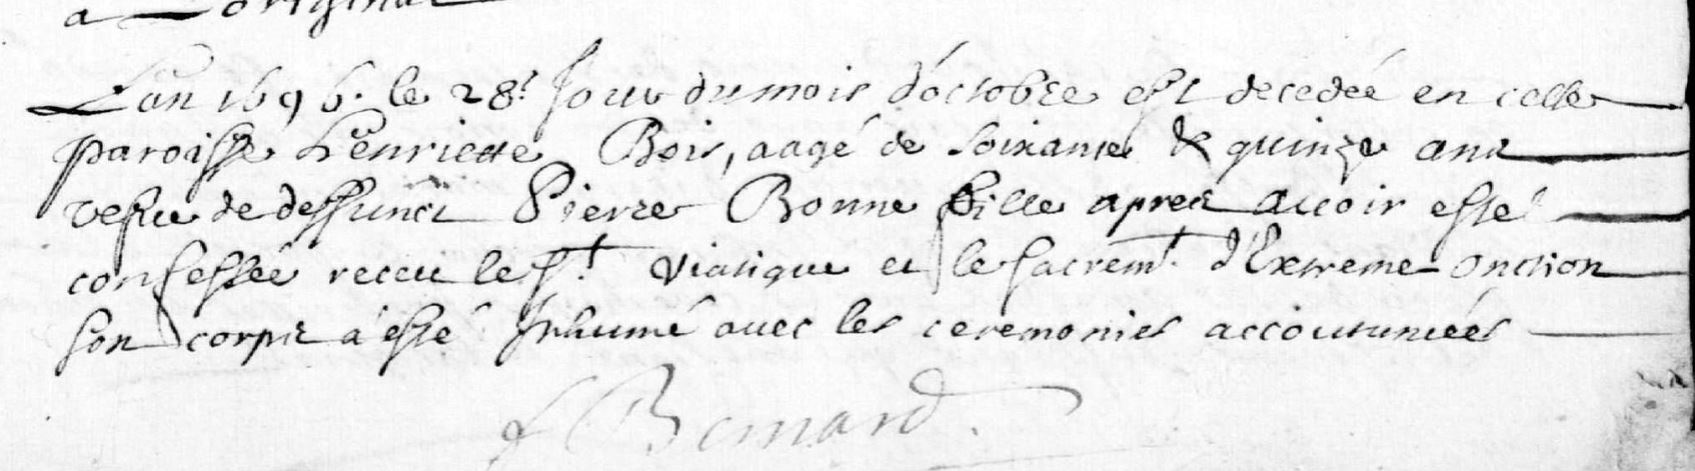 a l'original
L'an 1696. le 28e Jour du mois d'octobre est decedée en cette
paroisse henriette Bois, aagé de soixante & quinze ans
vefue de deffunct Pierre Bonne fille apres auoir esté
confessée receu le St. viatique et le sacremt. d'Extreme-Onction
son corps à esté Inhumé auec les ceremonies accoutumées
Bernard